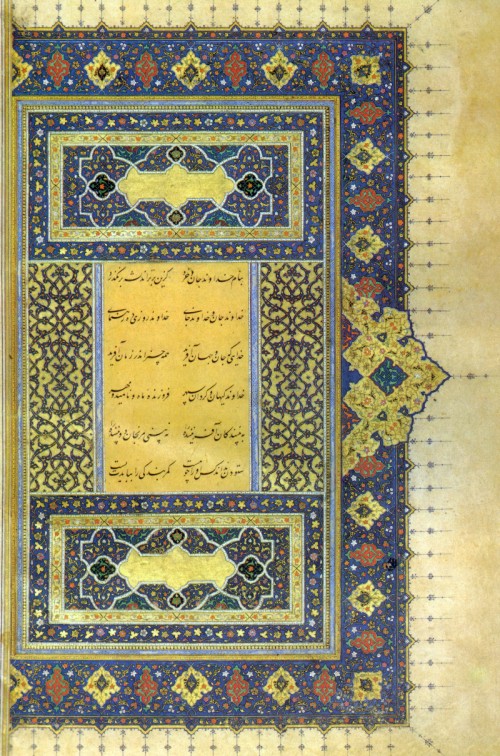 بنام خداوند جان و خرد کزین برتر اندیشه بر نگذرد
خداوند جان و خداوند جای خداوند روزی ده رهنمای
خدایی که جان و جهان آفرید همه چیز اندر زمان آفرید
خداوند کیهان و گردان سپهر فروزنده ماه و ناهید و مهر
به بینندگان آفریننده را نه بینی مرنجان دو بیننده را
ستودن نداند کس او را چو هست کمر بندگی را ببایدت بست